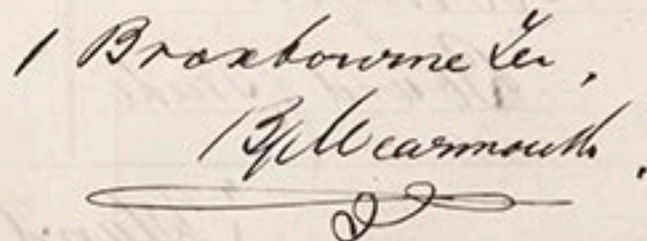 1 Broxbourne Ter,
Bp Wearmouth.